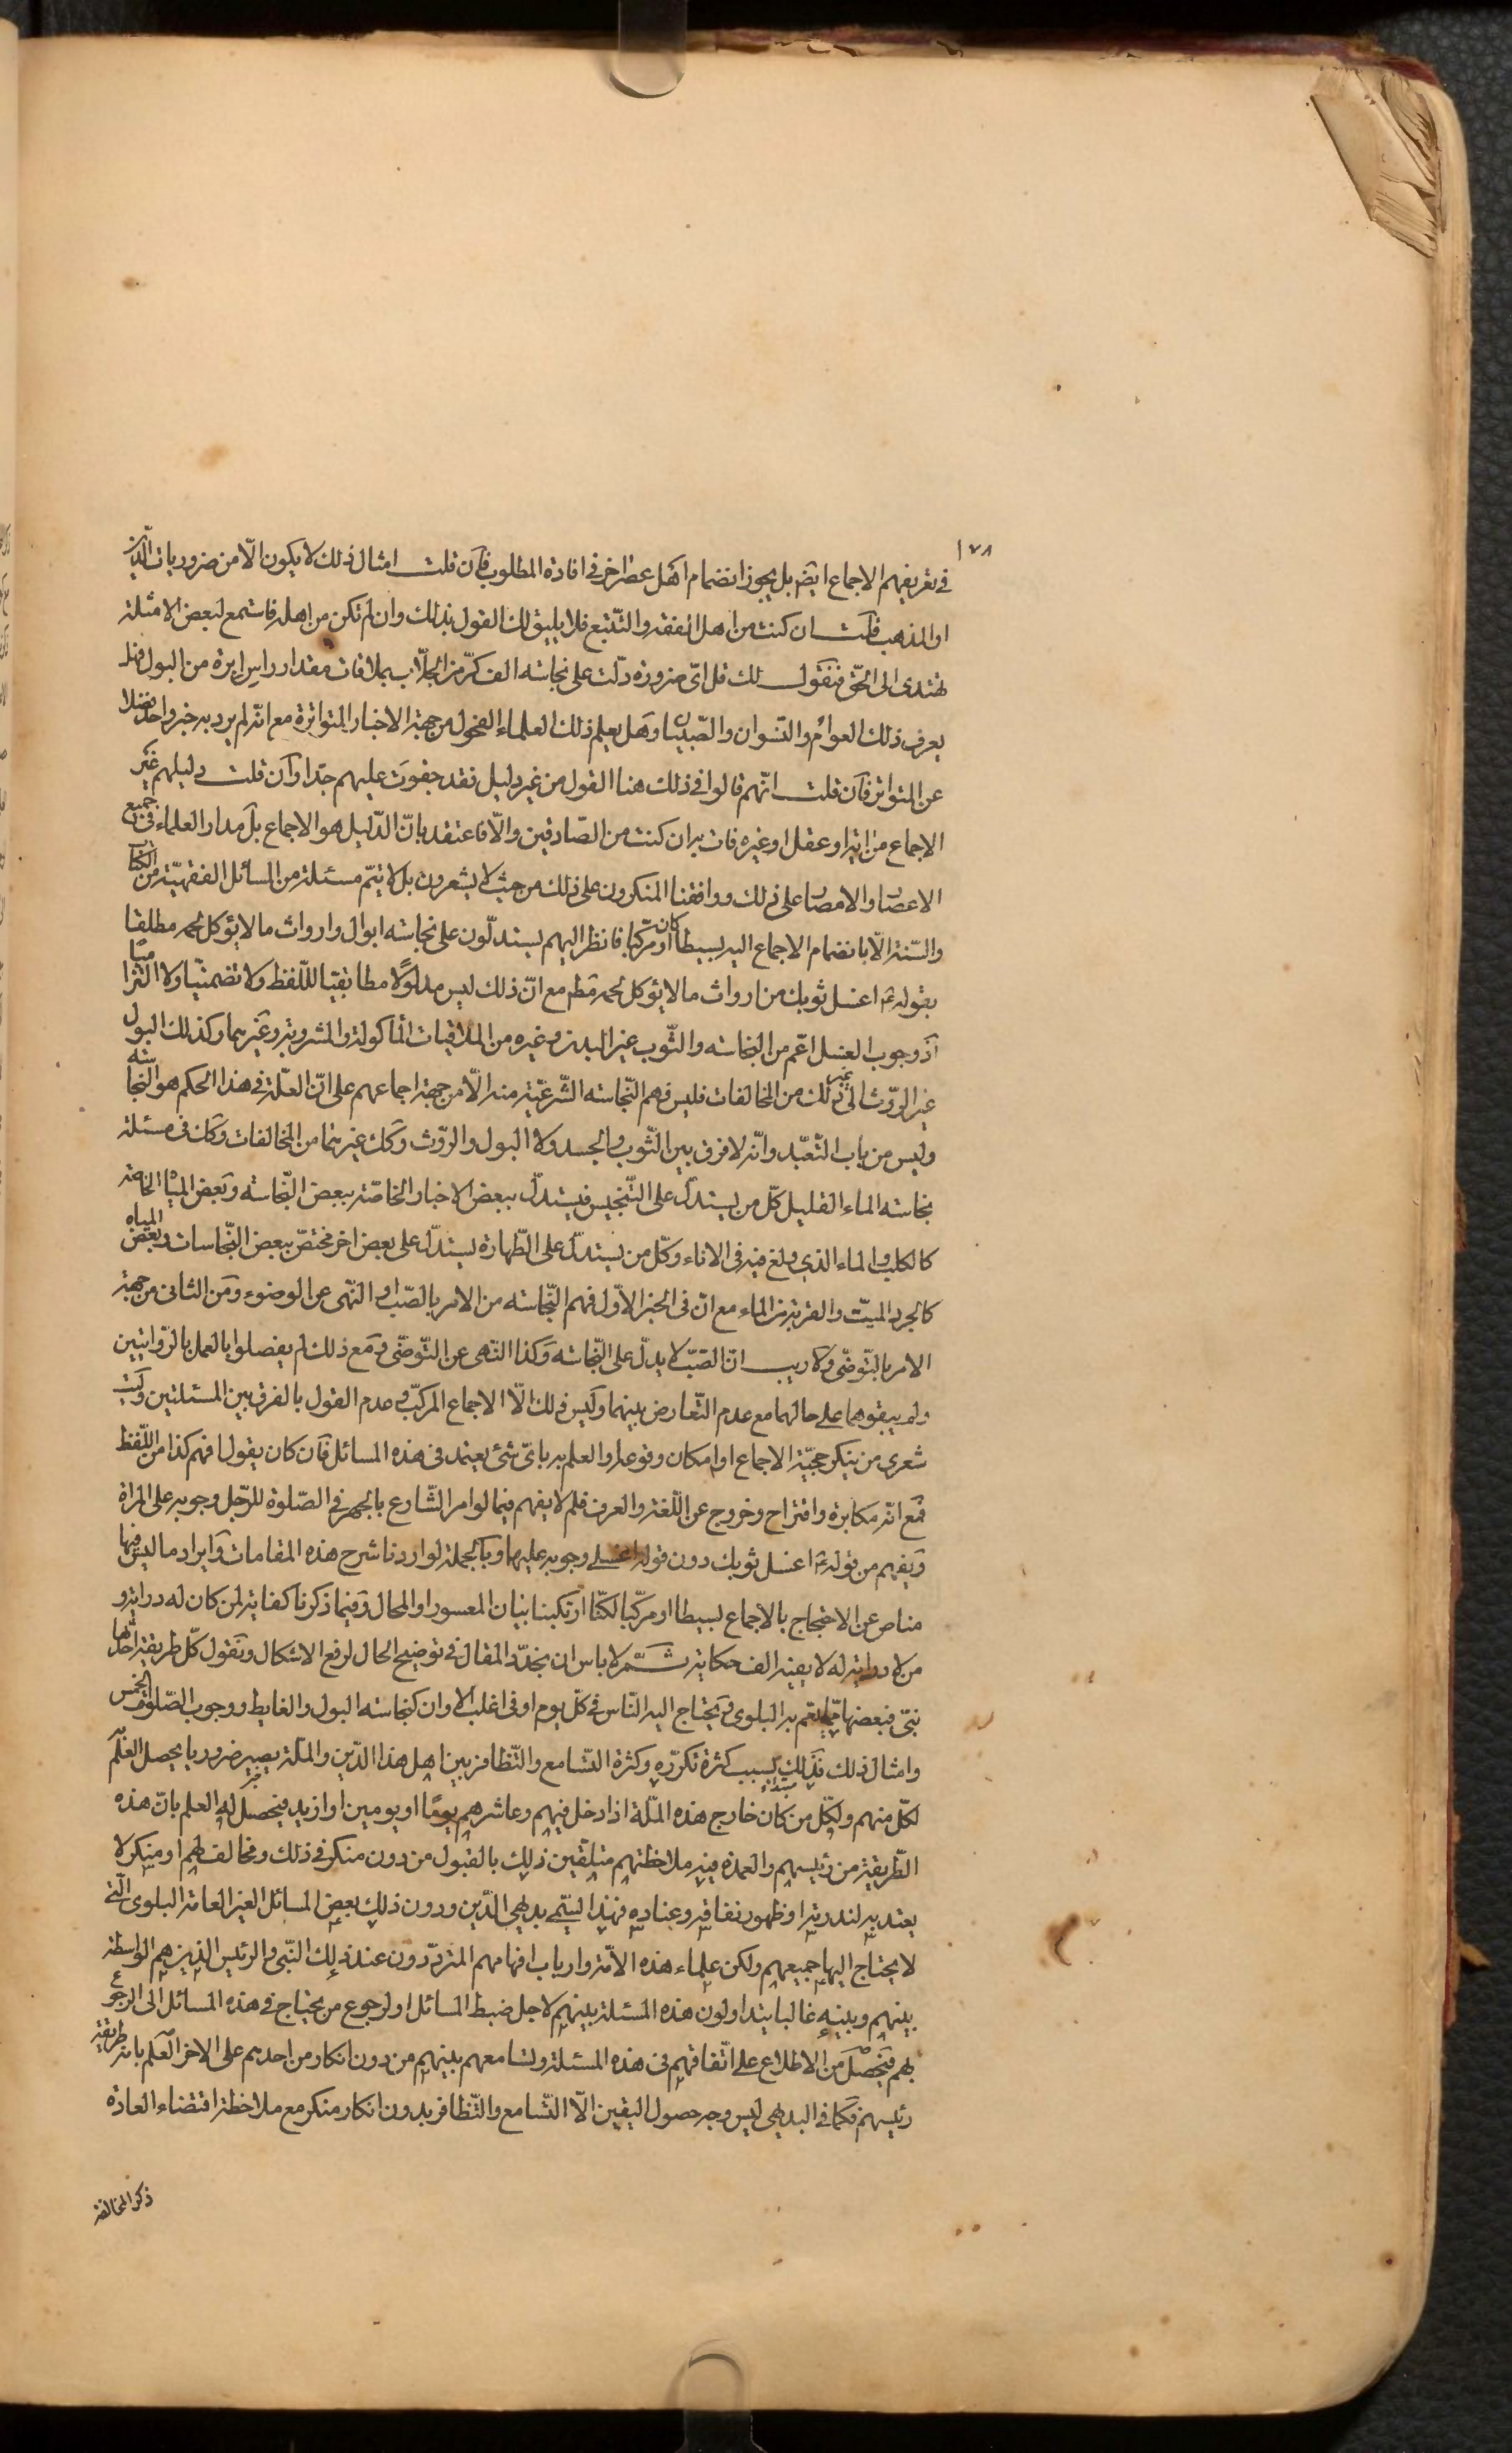 ١٧٨
في تعريفهم الاجماع ايضم بل يجوز انضمام اهل عصر اخر في افادة المطلوب فان قلت امثال ذلك لا يكون الّا من ضروريات الدّين
او المذهب قلت ان كنت من اهل الفقه والتّتبع فلا يليق لك القول بذلك وان لم تكن من اهله فاستمع لبعض الامثلة
تهتدى الى الحقّ فنقول لك قل اىّ ضرورة دلّت على نجاسته الف كرّ من الجلّاب بملاقات مقدار راس ابرة من البول فهل
يعرف ذلك العوامّ والنّسوان والصّبيان وهل يعلم ذلك العلماء الفحول من جهة الاخبار المتواترة مع انّه لم يرد به خبر واحد فضلا
عن المتواتر فان قلت انّهم قالوا في ذلك هنا القول من غير دليل فقد جفوت عليهم جدّا وان قلت دليلهم غير
الاجماع من اية او عقل او غيره فات به ان كنت من الصّادقين والّا فاعتقد بانّ الدّليل هو الاجماع بل مدار العلماء فى جميع
الاعصار والامصار على ذلك ووافقنا المنكرون على ذلك من حيث لا يشعرون بل لا يتمّ مسئلة من المسائل الفقهيّة من الكتاب
والسّنة الّا بانضمام الاجماع اليه بسيطا كان او مركّبا فانظر اليهم يستدلّون على نجاسته ابوال وارواث ما لا يؤكل لحمه مطلقا
بقوله ع اغسل ثوبك من ارواث ما لا يؤكل لحمه مع انّ ذلك ليس مدلولًا مطابقيّا للّفظ ولا تضمنيّا ولا التزاميّا
اذ وجوب الغسل اعّم من النجاسته والثّوب غير البدن وغيره من الملاقيات المأكولة والمشروبة وغيرهما وكذلك البول
غير الرّوث الى غير ذلك من المخالفات فليس فهم النّجاسته الشّرعيّة منه الّا من جهة اجماعهم على انّ العلّة فى هذا الحكم هو النجاسته
وليس من باب التّعبّد وانّه لا فرق بين الثّوب والجسد ولا البول والرّوث وكك غيرهما من المخالفات وكك فى مسئلة
نجاسته الماء القليل كلّ من يستدلّ على التّنجيس فيستدلّ ببعض الاخبار الخاصّة ببعض النّجاسته وبعض المياه الخاصّة
كالكلب والماء الذي ولغ فيه فى الاناء وكلّ من يستدلّ على الطّهارة يستدلّ على بعض اخر مختصّ ببعض النّجاسات وبعض المياه
كالجرد الميّت والقربة من الماء مع انّ فى الخبر الاوّل فهم النّجاسته من الامر بالصّب او النّهى عن الوضوء ومن الثانى من جهة
الامر بالتّوضّى ولا ريب انّ الصّبّ لا يدلّ على النّجاسته وكذا النّهى عن التّوضّى ومع ذلك لم يفصلوا بالعمل بالرّوايتين
ولم يبقوهما على حالهما مع عدم التّعارض بينهما وليس ذلك الّا الاجماع المركّب وعدم القول بالفرق بين المسئلتين وليت
شعرى من ينكر حجيّة الاجماع او امكان وقوعه او العلم به باىّ شىء يعتمد فى هذه المسائل فان كان يقول افهم كذا من اللّفظ
فمع انّه مكابرة واقتراح وخروج عن اللّغة والعرف فلم لا يفهم فيما لو امر الشّارع بالجهر فى الصّلوة للرّجل وجوبه على المراة
ويفهم من قوله ع اغسل ثوبك دون قوله اغسلى وجوبه عليهما وبالجملة لو اردنا شرح هذه المقامات وايراد ما ليس فيها
مناص عن الاحتجاج بالاجماع بسيطا او مركّبا لكنّا ارتكبنا بيان المعسور او المحال وفيما ذكرنا كفاية لمن كان له دراية و
من لا دراية له لا يغنيه الف حكاية ثمّ لا باس ان نجدّد المقال فى توضيح الحال لرفع الاشكال ونقول كلّ طريقة احدثها
نبىّ فبعضها ممّا يعّم به البلوى ويحتاج اليه النّاس فى كلّ يوم او فى اغلب الاوان كنجاسته البول والغايط ووجوب الصّلوة الخمس
وامثال ذلك فذلك بسبب كثرة تكرّره وكثرة التّسامع والتّظافر بين اهل هذا الدّين والملّة يصير ضروريا يحصل العلم به
لكلّ منهم ولكّل من كان خارج هذه الملّة اذا دخل فيهم وعاشرهم يومًا او يومين او ازيد فيحصل له العلم بانّ هذه
الطّريقة من رئيسهم والعمدة فيه ملاحظتهم متلقّين ذلك بالقبول من دون منكر فى ذلك ومخالف لهم او منكر لا
يعتد به لندرته او ظهور نفاقه وعناده فهذا ليسمّى بديهى الدّين ودون ذلك بعض المسائل الغير العامة البلوى الّتى
لا يحتاج اليها جميعهم ولكن علماء هذه الامّة وارباب افهامهم المتردّدون عند ذلك النّبى والرئيس الذين هم الواسطة
بينهم وبينه غالبا يتداولون هذه المسئلة بينهم لاجل ضبط المسائل او لرجوع من يحتاج فى هذه المسائل الى الرجوع
بهم فيحصل من الاطلاع على اتّفاقهم فى هذه المسئلة وتسامعهم بينهم من دون انكار من احدهم على الاخر العلم بانه طريقة
رئيسهم فكما فى البديهى ليس وجه حصول اليقين الّا التّسامع والتّظافر بدون انكار منكر مع ملاحظة اقتضاء العادة
ذكر المخالفة